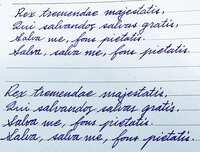 Rex tremendae majestatis.
Qui salvandos salvas gratis.
Salva me, fons pietatis.
Salva, salva me, fons pietatis.
Rex tremendae majestatis.
Qui salvandos salvas gratis.
Salva me, fons pietatis.
Salva, salva me, fons pietatis.